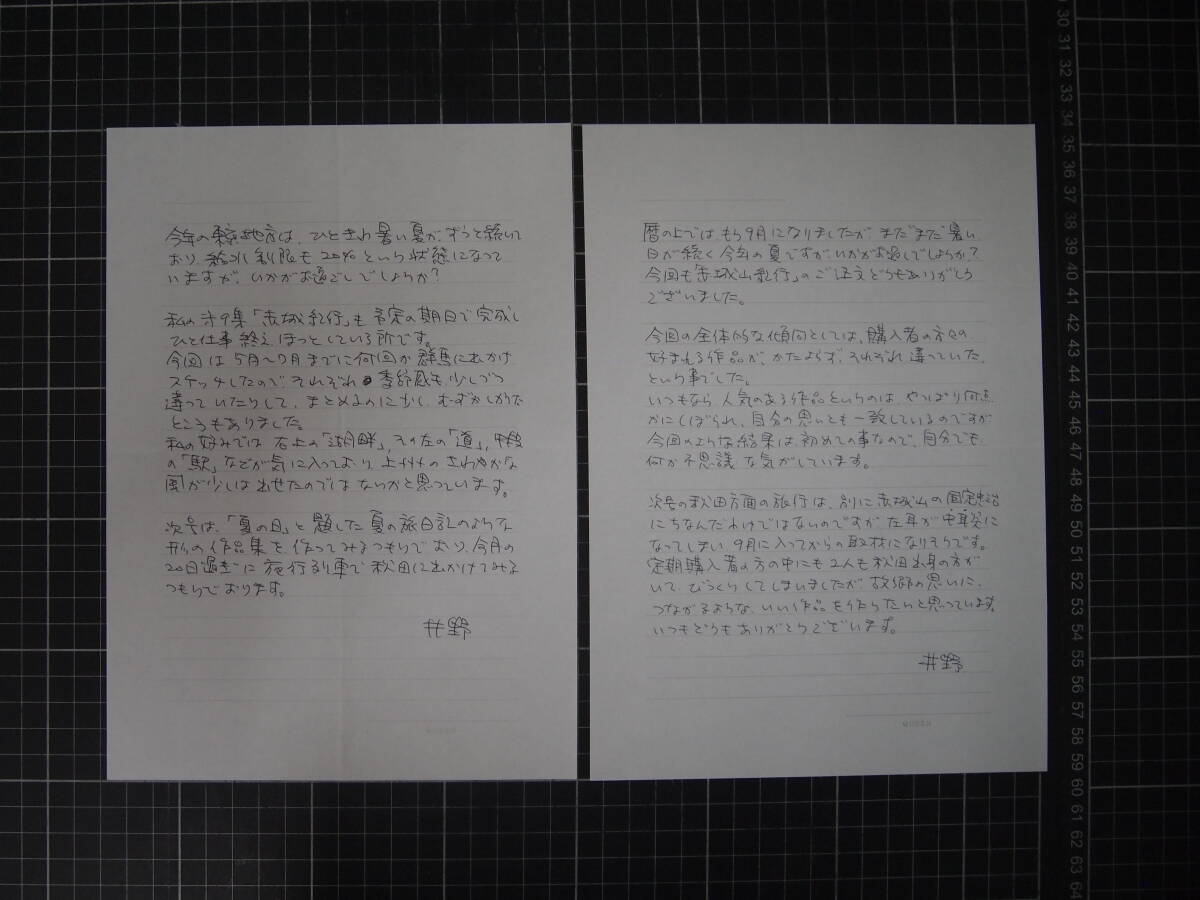 今年の東京地方は、ひときわ暑い夏が、ずっと続いて
おり、給水制限も20%という状態になって
いますが、いかがお過ごしでしょうか?
私の第9集「赤城紀行」も予定の期日で完成し
ひと仕事終え、ほっとしている所です。
今回は5月〜7月までに何回か群馬に出かけ
スケッチしたので、それぞれ季節感も、少しづつ
違っていたりして、まとめるのに少し、むずかしかった
ところもありました。
私の好みでは 右上の「湖畔」、その左の「道」、中段
の「駅」などが気に入っており、上州のさわやかな
風が少しは出せたのではないかと思っています。
次号は、「夏の日」と題した夏の旅日記のような
形の作品集を、作ってみるつもりでおり、今月の
20日過ぎに 夜行列車で秋田に出かけてみる
つもりでおります。
井野
暦の上では、もう9月になりましたが、まだまだ暑い
日が続く今年の夏ですが、いかがお過しでしょうか?
今回も「赤城山紀行」のご注文どうもありがとう
ございました。
今回の全体的な傾向としては、購入者の方々の
好まれる作品が、かたよらず、それぞれ違っていた、
という事でした。
いつもなら、人気のある作品というのは、やっぱり何点
かにしぼられ、自分の思いとも一致しているのですが
今回のような結果は、初めての事なので、自分でも、
何か不思議な気がしています。
次号の秋田方面の旅行は、別に赤城山の国定忠治
にちなんだわけではないのですが、左耳が中耳炎に
なってしまい 9月に入ってからの取材になりそうです。
定期購入者の方の中にも2人も秋田出身の方が
いて、びっくりしてしまいましたが、故郷の思いに、
つながるような、いい作品を作りたいと思っています。
いつもどうもありがとうございます。
井野
30
31
32
33
34
35
36
37
38
39
40
41
42
43
44
45
46
47
48
49
50
51
52
53
54
55
56
57
58
59
60
61
62
63
64